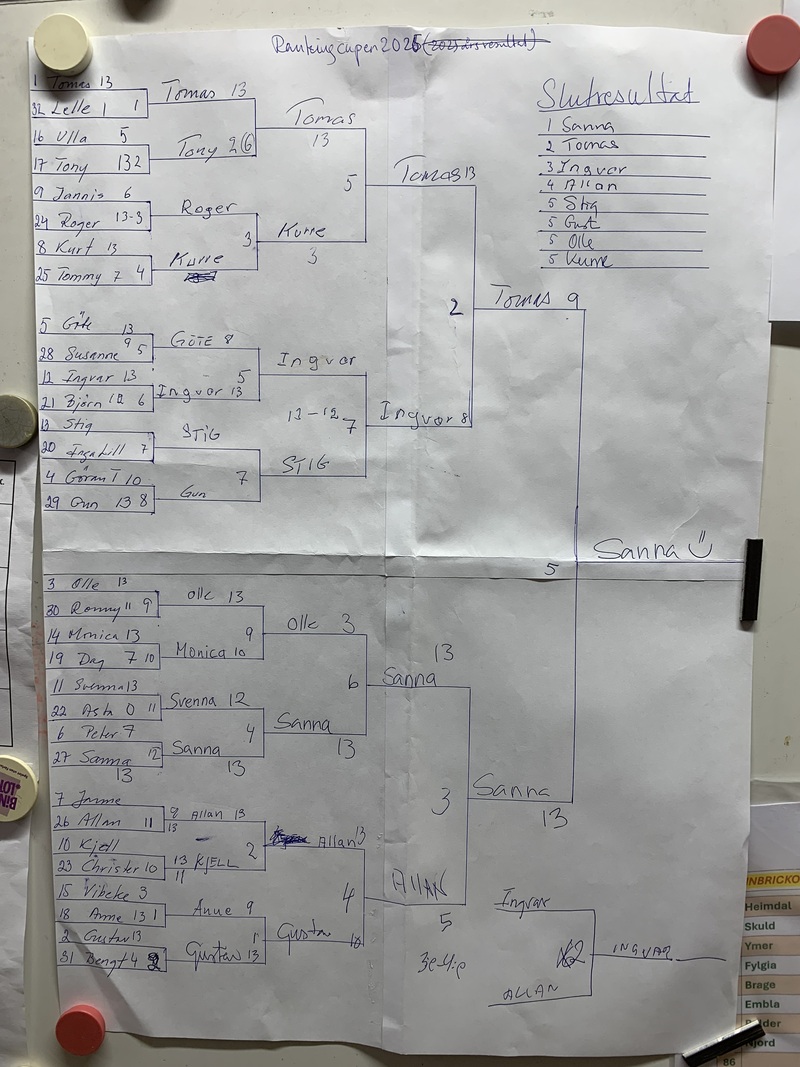 Rankingcupen 2025 (2023 års resultat)
Slutresultat
1 Sanna
2 Tomas
3 Ingvar
4 Allan
5 Stig
5 Gust
5 Olle
5 Kurre
1 Tomas 13
32 Lelle 1 1
16 Ulla 5
17 Tony 13 2
9 Jannis 6
24 Roger 13-3
8 Kurt 13
25 Tommy 7 4
5 Göte 13
28 Susanne 9 5
12 Ingvar 13
21 Björn 12 6
13 Stig
20 Ingalill 7
4 Göran T 10
29 Gun 13 8
3 Olle 13
30 Ronny 11 9
14 Monica 13
19 Dag 7 10
11 Svenna 13
22 Asta 0 11
6 Peter 7
27 Sanna 12
13
7 Janne
26 Allan 11
10 Kjell
23 Christer 10
15 Vibeke 3
18 Anne 13 1
2 Gustav 13
31 Bengt 4 2
Tomas 13
Tony 2 6
Roger
3
Kurre
GÖTE 8
5
Ingvar 13
STIG
7
Gun
Olle 13
9
Monica 10
Svenna 12
4
Sanna
13
9 Allan 13
13
2
13 KJELL
11
Anne 9
1
Gustav 13
Tomas
13
5
Kurre
3
Ingvar
13-12
7
STIG
Olle 3
6
Sanna
13
Allan 13
4
Gustav
10
Tomas 13
2
Ingvar 8
13
Sanna
3
ALLAN
5
Tomas 9
5
Sanna
13
Sanna
3e-4:e
Ingvar
ALLAN
INGVAR
INBRICKO
Heimdal
Skuld
Ymer
Fylgia
Brage
Embla
Njord
86